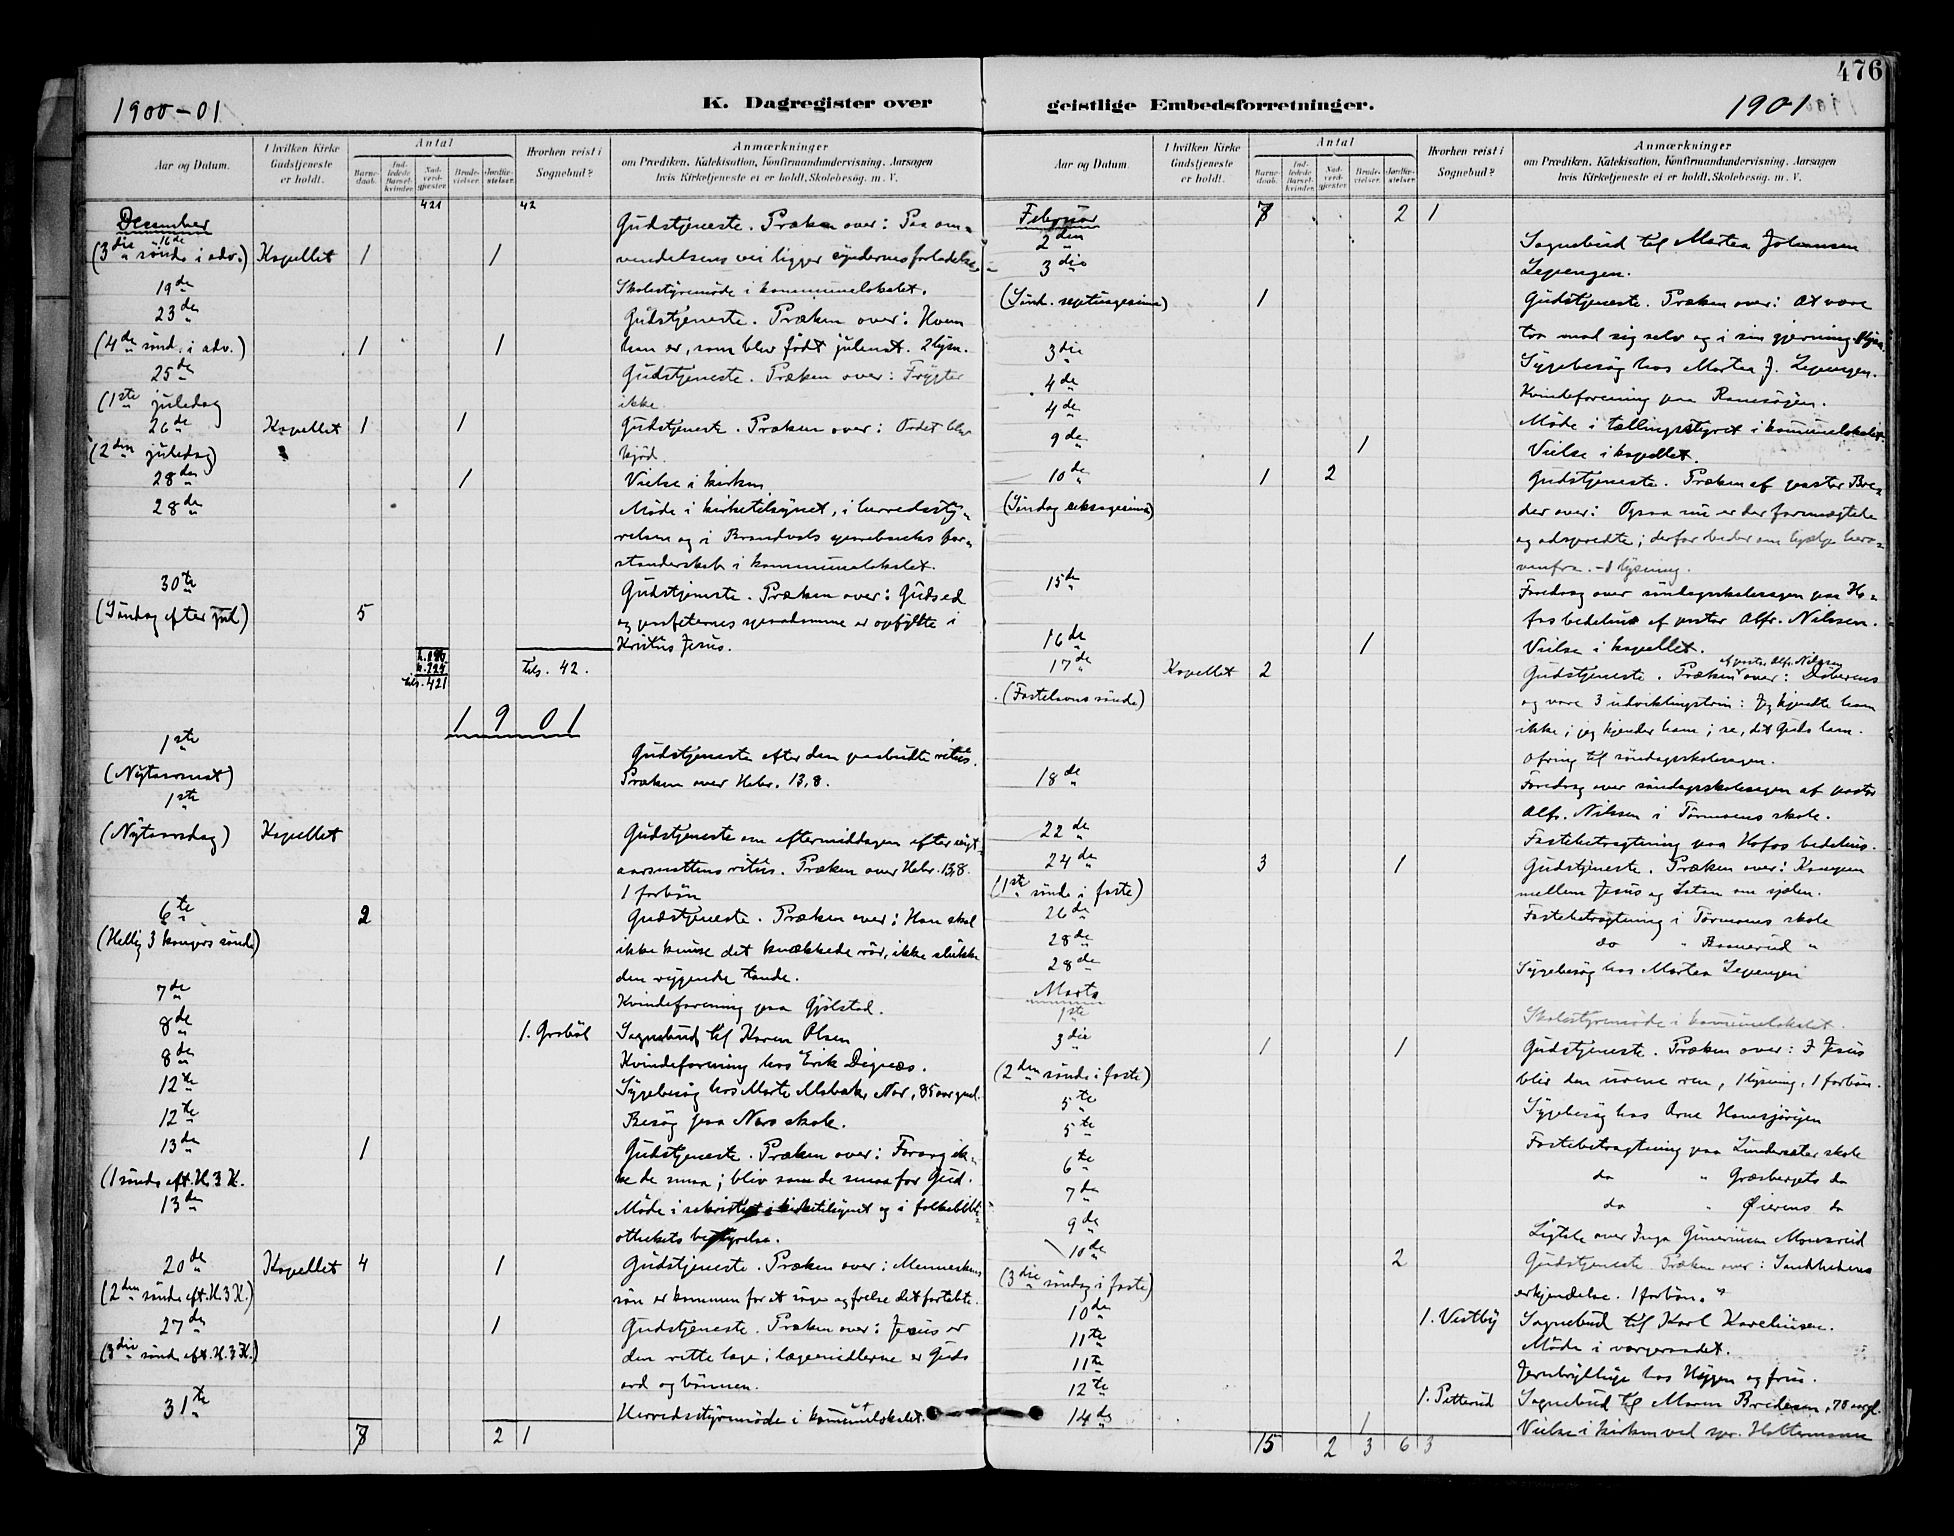 476
1900-01
K. Dagregister over
Aar og Datum.
I hvilken Kirke Gudstjeneste er holdt.
Antal
Barnedaab.
Indledede Barselkvinder.
Nadverdgjester.
Brudevielser.
Jordfæstelser.
Hvorhen reist i Sognebud?
Anmærkninger
om Prædiken, Katekisation, Konfirmandundervisning, Aarsagen
hvis Kirketjeneste ei er holdt, Skolebesøg, m. V.
421 42
December
16de Gudstjeneste. Præken over: Paa om-
(3die sønd. i adv.) Kapellet 1 1 vendelsens vei ligger syndernes forladelse
19de Skolestyremøde i kommunelokalet.
23de Gudstjeneste. Præken over: Hvem
(4de sønd. i adv.) 1 1 han er, som blev født julenat. 2 lysn.
25de Gudstjeneste. Præken over: Frygter
(1ste juledag ikke.
26de Kapellet 1 1 Gudstjeneste. Præken over: Ordet blev
(2den juledag) kjød.
28de 1 Vielse i kirken
28de Møde i kirketilsynet, i herredssty-
relsen og i Brandvals sparebanks for-
standerskab i kommunelokalet.
30te Gudstjeneste. Præken over: Guds ed
(Søndag efter jul) 5 og profeternes spaadomme er opfyldte i
Kristus Jesus.
tils. 42.
tils. 421
1901
1ste Gudstjeneste efter den paabudte ritus.
(Nytaarsnat) Præken over Hebr. 13,8.
1ste
(Nytaarsdag) Kapellet Gudstjeneste om eftermiddagen efter nyt-
aarsnattens ritus. Præken over Hebr. 13,8.
1 forbøn
6te 2 Gudstjeneste. Præken over: Han skal
(Hellig 3 kongers sønd.) ikke knuse det knækkede rør, ikke slukke
den rygende tande.
7de Kvindeforening paa Gjølstad.
8de 1. Grobøl Sognebud til Karen Olsen
8de Kvindeforening hos Erik Dignæs.
12te Sygebesøg hos Marte Nor, 85 aar gml.
12te Besøg paa Nors skole.
13de 1 Gudstjeneste. Præken over: Foragt ik-
(1 sønd. eft. H. 3 K. ke de smaa; bliv som de smaa for Gud.
13de Møde i sakristiet i kirketilsynet og i folkebibli-
othekets bestyrelse.
20de Kapellet 4 1 Gudstjeneste. Præken over: Menneskens
(2den sønd. eft. H. 3 K.) søn er kommen for at søge og frelse det fortabte.
27de 1 Gudstjeneste. Præken over: Jesus er
(3die sønd. eft. H. 3 K.) den rette læge; lægemidlerne er Guds
ord og bønnen.
31te Herredsstyremøde i kommunelokalet.
8 2 1
geistlige Embedsforretninger.
1901
Aar og Datum.
I hvilken Kirke Gudstjeneste er holdt.
Antal
Barnedaab.
Indledede Barselkvinder.
Nadverdgjester.
Brudevielser.
Jordfæstelser.
Hvorhen reist i Sognebud?
Anmærkninger
om Prædiken, Katekisation, Konfirmandundervisning, Aarsagen
hvis Kirketjeneste ei er holdt, Skolebesøg, m. V.
Februar 8 2 1
2den Sognebud til Martea Johansen
3die Lepengen.
(Sønd. septuagesima) 1 Gudstjeneste. Præken over: At være
tro mod sig selv og i sin gjerning. lysn.
3die Sygebesøg hos Martea J. Lepengen.
4de Kvindeforening paa
4de Møde i tællingsstyret i kommunelokalet
9de 1 Vielse i kapellet.
10de 1 2 Gudstjeneste. Præken af pastor Bre-
(Søndag seksagesima) der over: Ogsaa nu er der
og adspredte; derfor beder om hjælp hero-
venfra. - lysning.
15de Foredrag over søndagsskolesagen paa Ho-
fos bedehus af pastor Alfr. Nilssen.
16de 1 Vielse i kapellet.
af pastor Alfr. Nilssen
17de Kapellet 2 Gudstjeneste. Præken over: Døberens
(Fastelavns sønda) og vore 3 udviklingstrin: Jeg kjendte ham
ikke; jeg kjender ham; se, det Guds lam.
Ofring til søndagsskolesagen.
18de Foredrag over søndagsskolesagen af pastor
Alfr. Nilssen i Tørmoens skole.
22de Fastebetragtning paa Hofos bedehus.
24de 3 1 Gudstjeneste. Præken over: Kampen
(1ste sønd. i faste) mellem Jesus og Satan om sjælen.
26de Fastebetragtning i Tørmoens skole
28de do "
28de Sygebesøg hos Martea Lepengen
Marts
1ste Skolestyremøde i kommunelokalet.
3die 1 1 Gudstjeneste. Præken over: I Jesus
(2den sønd. i faste) blir den urene ren, 1 lysning, 1 forbøn.
5te Sygebesøg hos Arne
5te Fastebetragtning paa Lundersæter skole
6te do " Græsbergets do
7de do " Øierens do
9de Ligtale over Inga
10de 2 Gudstjeneste. Præken over: Sandhedens
(3die søndag i faste) erkjendelse. 1 forbøn.
10de 1. Vestby Sognebud til Karl Karelius.
11te Møde i vergeraadet.
11te hos Hyggen og frue.
12te 1. Petterud Sognebud til Maren Bredesen, 78 aar gl.
14de 1 Vielse i kirken ved spr. Holtermann
15 2 3 6 3